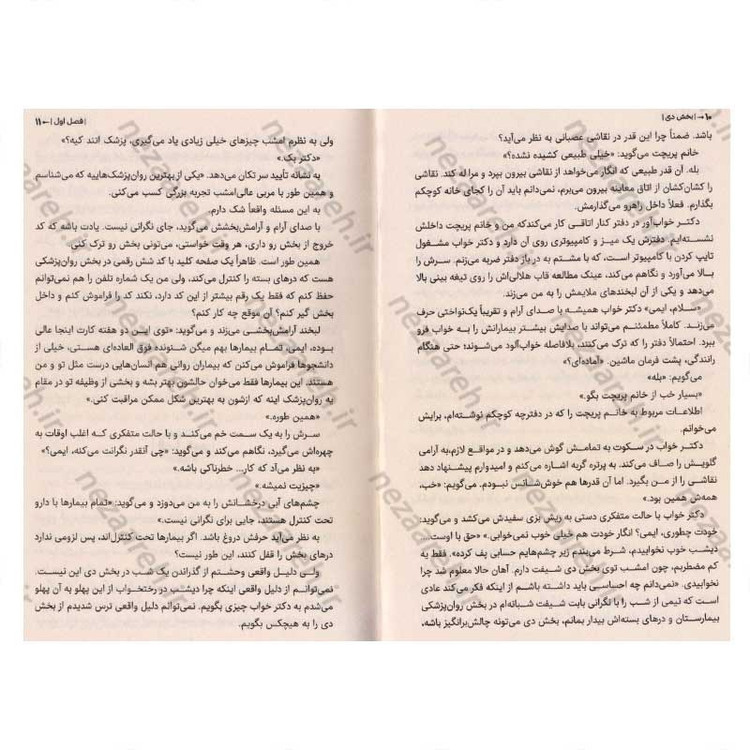 ۱۰ → | بخش دی |
باشد. ضمناً چرا این قدر در نقاشی عصبانی به نظر می‌آید؟
خانم پریچت می‌گوید: «خیلی طبیعی کشیده نشده؟»
بله. آن قدر طبیعی که انگار می‌خواهد از نقاشی بیرون بپرد و مرا له کند. نقاشی
را کشان‌کشان از اتاق معاینه بیرون می‌برم، نمی‌دانم باید آن را کجای خانه کوچکم
بگذارم. فعلاً داخل راهرو می‌گذارمش.
دکتر خواب‌آور در دفتر کنار اتاقی کار می‌کند که من و خانم پریچت داخلش
نشسته‌ایم. دفترش یک میز و کامپیوتری روی آن دارد و دکتر خواب مشغول
تایپ کردن با کامپیوتر است، که با مشتم به در باز دفتر ضربه می‌زنم. سرش را
بالا می‌آورد و نگاهم می‌کند، عینک مطالعه قاب هلالی‌اش را روی تیغه بینی بالا
می‌دهد و یکی از آن لبخندهای ملایمش را به من می‌زند.
«سلام، ایمی» دکتر خواب همیشه با صدای آرام و تقریباً یک‌نواختی حرف
می‌زند. کاملاً مطمئنم می‌تواند با صدایش بیشتر بیمارانش را به خواب فرو
ببرد. احتمالاً دفتر را که ترک می‌کنند، بلافاصله خواب‌آلود می‌شوند؛ حتی هنگام
رانندگی، پشت فرمان ماشین. «آماده‌ای؟»
می‌گویم: «بله»
«بسیار خب از خانم پریچت بگو.»
اطلاعات مربوط به خانم پریچت را که در دفترچه کوچکم نوشته‌ام، برایش
می‌خوانم.
دکتر خواب در سکوت به تمامش گوش می‌دهد و در مواقع لازم،به آرامی
گلویش را صاف می‌کند. به پرتره گربه اشاره می‌کنم و امیدوارم پیشنهاد دهد
نقاشی را از من بگیرد. اما آن قدرها هم خوش‌شانس نبودم. می‌گویم: «خب،
همه‌ش همین بود.»
دکتر خواب با حالت متفکری دستی به ریش بزی سفیدش می‌کشد و می‌گوید:
خودت چطوری، ایمی؟ انگار خودت هم خیلی خوب نمی‌خوابی.» «حق با اوست...
دیشب خوب نخوابیدم، شرط می‌بندم زیر چشم‌هایم حسابی پف کرده». فقط یه
کم مضطربم، چون امشب توی بخش دی شیفت دارم. آهان حالا معلوم شد چرا
نخوابیدی. «نمی‌دانم چه احساسی باید داشته باشم از اینکه فکر می‌کند عادی
است که نیمی از شب را با نگرانی بابت شیفت شبانه‌ام در بخش روان‌پزشکی
بیمارستان و درهای بسته‌اش بیدار بمانم، بخش دی می‌تونه چالش‌برانگیز باشه،
| فصل اول | ← ۱۱
ولی به نظرم امشب چیزهای خیلی زیادی یاد می‌گیری، پزشک آنند کیه؟»
«دکتر بک.»
به نشانه تأیید سر تکان می‌دهد. «یکی از بهترین روان‌پزشک‌هاییه که می‌شناسم
و همین طور با مربی عالی‌امشب تجربه بزرگی کسب می‌کنی.
به این مسئله واقعاً شک دارم.
با صدای آرام و آرامش‌بخشش می‌گوید، جای نگرانی نیست. یادت باشه که کد
خروج از بخش رو داری، هر وقت خواستی، می‌تونی بخش رو ترک کنی.
همین طور است. ظاهراً یک صفحه کلید با کد شش رقمی در بخش روان‌پزشکی
هست که درهای بسته را کنترل می‌کند، ولی من یک شماره تلفن را هم نمی‌توانم
حفظ کنم که فقط یک رقم بیشتر از این کد دارد، نکند کد را فراموش کنم و داخل
بخش گیر کنم؟ آن موقع چه کار کنم؟
لبخند آرامش‌بخشی می‌زند و می‌گوید: «توی این دو هفته کارت اینجا عالی
بوده، ایمی، تمام بیمارها بهم میگن شنونده فوق العاده‌ای هستی، خیلی از
دانشجوها فراموش می‌کنن که بیماران روانی هم انسان‌هایی درست مثل تو و من
هستند. این بیمارها فقط می‌خوان حالشون بهتر بشه و بخشی از وظیفه تو در مقام
یه روان‌پزشک اینه که ازشون به بهترین شکل ممکن مراقبت کنی.»
«همین طوره.»
سرش را به یک سمت خم می‌کند و با حالت متفکری که اغلب اوقات به
چهره‌اش می‌گیرد، نگاهم می‌کند و می‌گوید: «چی آنقدر نگرانت می‌کنه، ایمی؟»
«به نظر می‌آد که کار... خطرناکی باشه.»
«چیزیت نمیشه.»
چشم‌های آبی درخشانش را به من می‌دوزد و می‌گوید: «تمام بیمارها با دارو
تحت کنترل هستند، جایی برای نگرانی نیست.»
به نظر می‌آید حرفش دروغ باشد. اگر بیمارها تحت کنترل‌اند، پس لزومی ندارد
درهای بخش را قفل کنند، این طور نیست؟
ولی دلیل واقعی وحشتم از گذراندن یک شب در بخش دی این نیست.
نمی‌توانم از دلیل واقعی اینکه چرا دیشب در رختخواب از این پهلو به آن پهلو
می‌شدم به دکتر خواب چیزی بگویم. نمی‌توانم دلیل واقعی ترس شدیدم از بخش
دی را به هیچکس بگویم.
nezaareh.ir